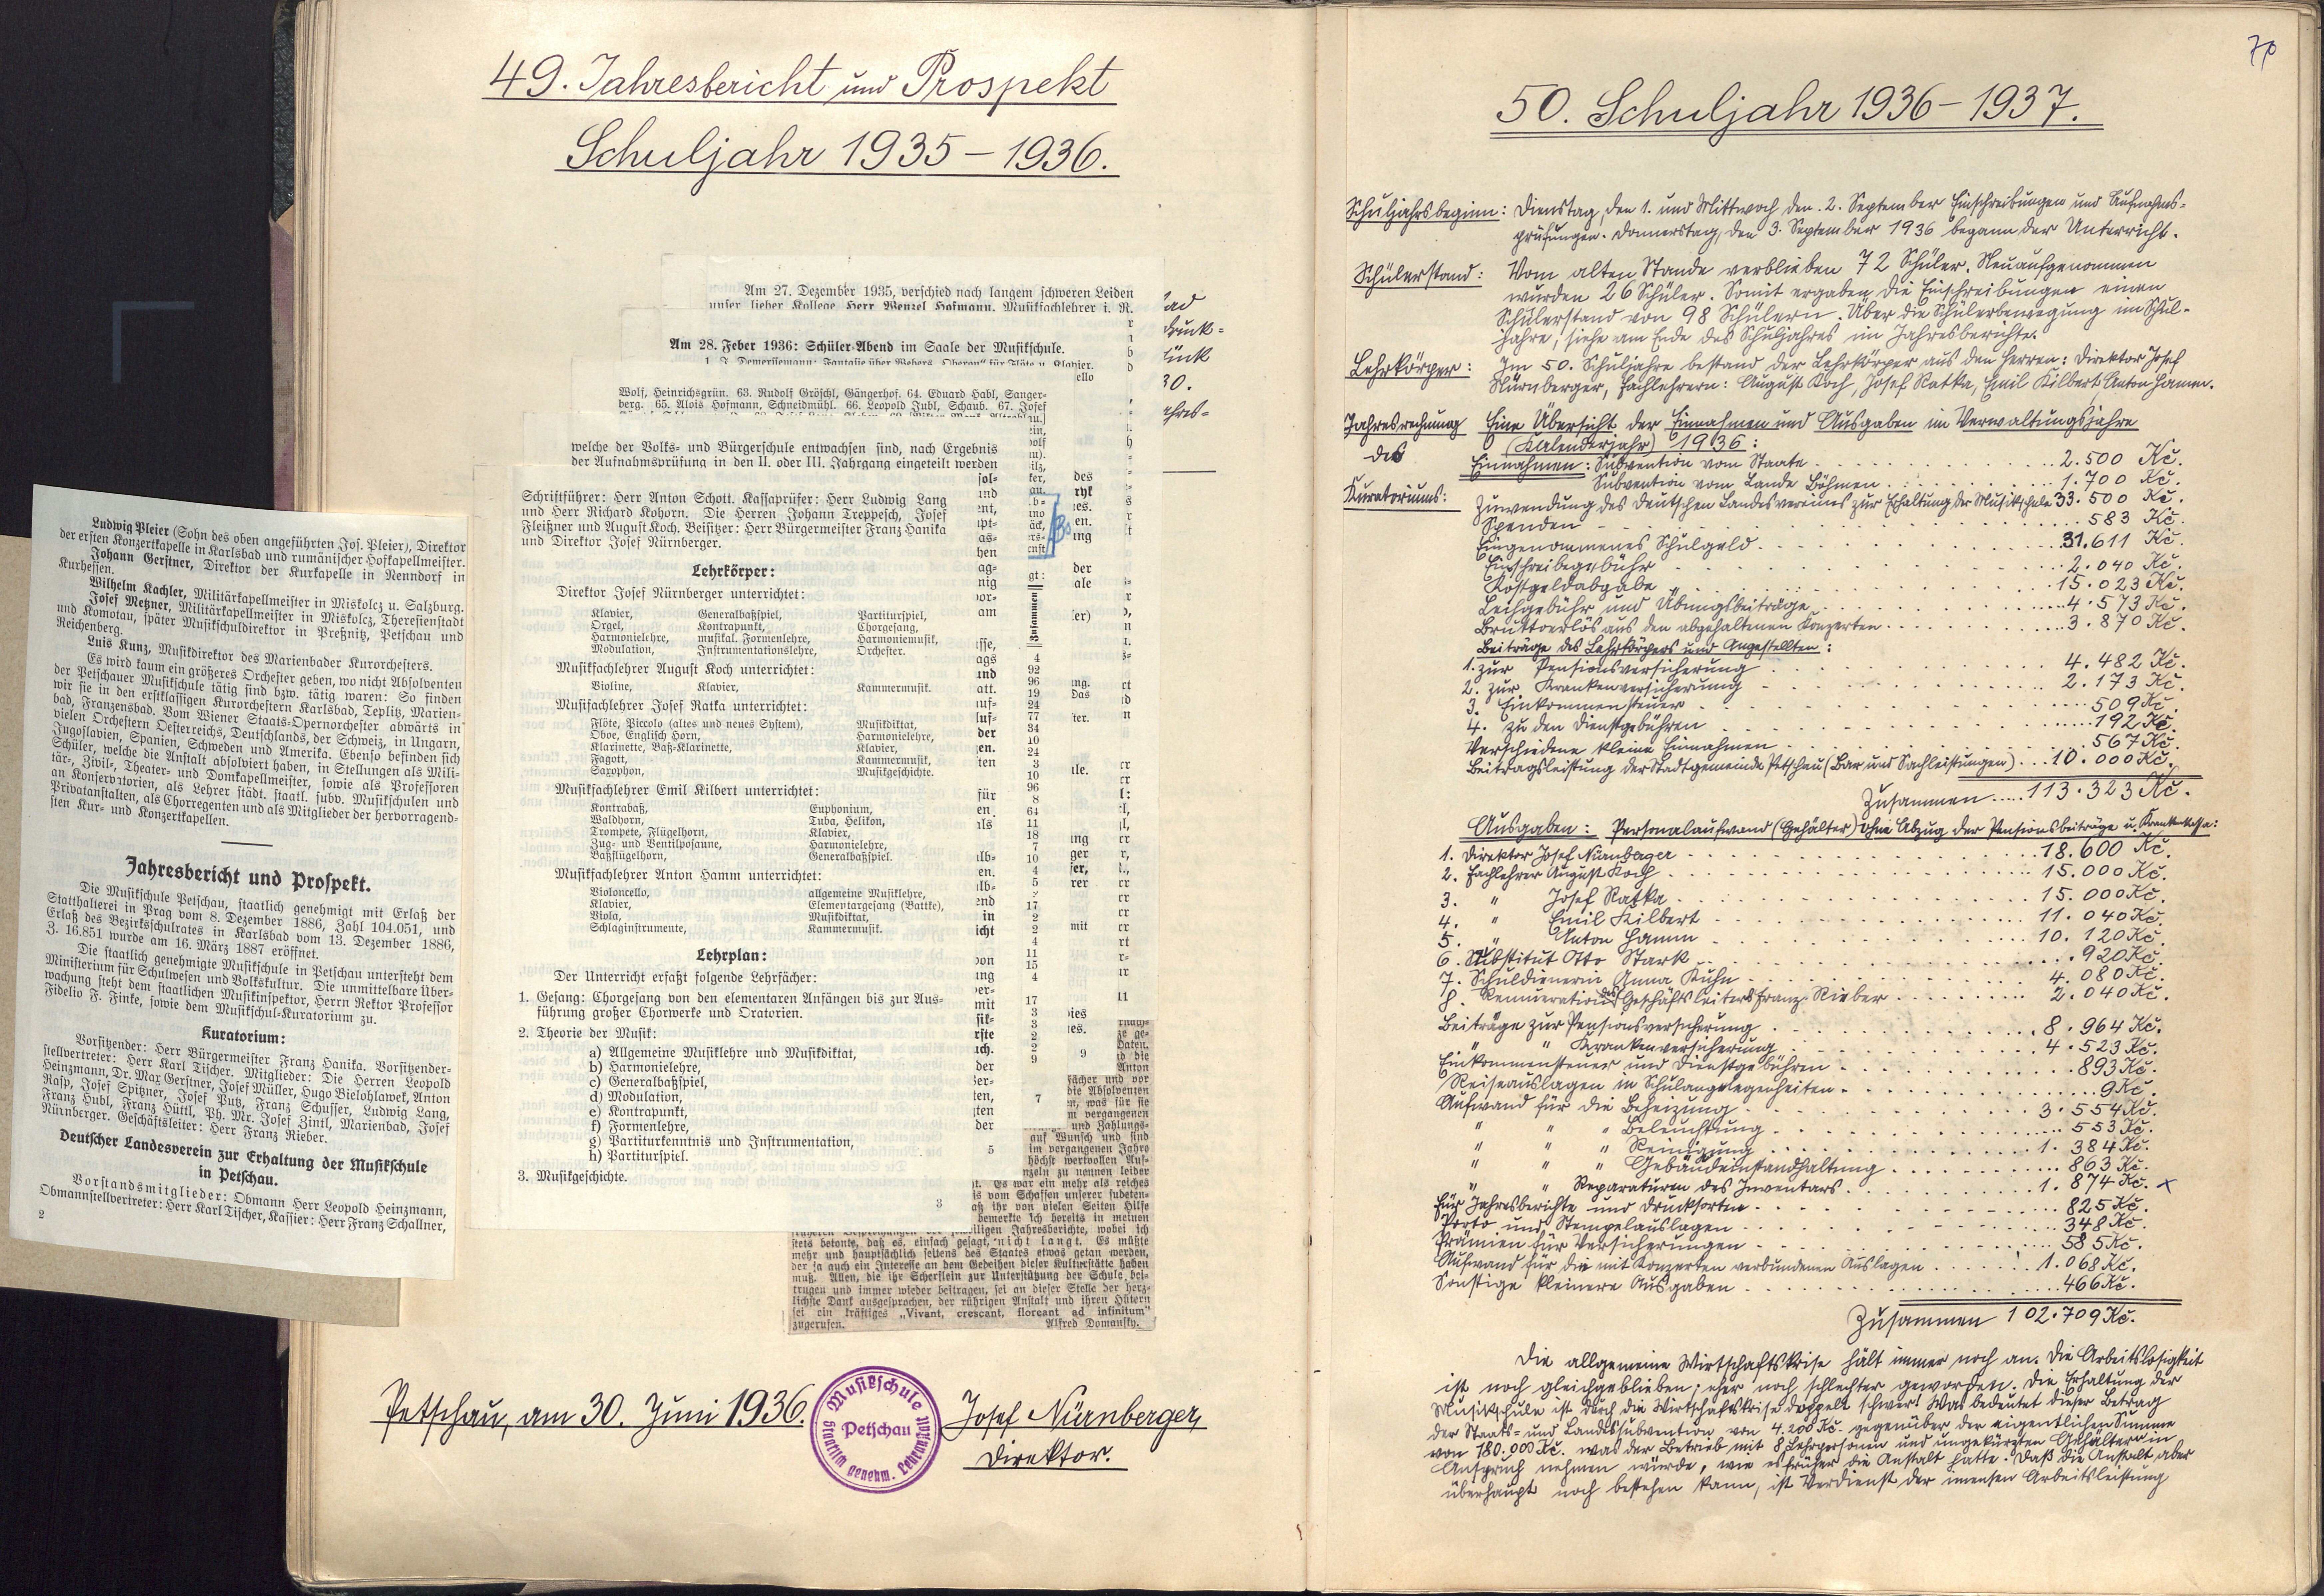 49. Jahresbericht und Prospekt
Schuljahr 1935 – 1936.
Am 27. Dezember 1935, verschied nach langem schweren Leiden
unser lieber Kollege Herr Wenzel Hofmann, Musikfachlehrer i. R.
Am 28. Feber 1936: Schüler-Abend im Saale der Musikschule.
1. J. Demerssemann: Fantasie über Webers „Oberon“ für Flöte u. Klavier.
Wolf, Heinrichsgrün. 63. Rudolf Gröschl, Gängerhof. 64. Eduard Habl, Sanger-
berg. 65. Alois Hofmann, Schneidmühl. 66. Leopold Zubl, Schaub. 67. Josef
welche der Volks- und Bürgerschule entwachsen sind, nach Ergebnis
der Aufnahmsprüfung in den II. oder III. Jahrgang eingeteilt werden
Ludwig Pleier (Sohn des oben angeführten Jos. Pleier), Direktor
der ersten Konzertkapelle in Karlsbad und rumänischer Hofkapellmeister.
Johann Gerstner, Direktor der Kurkapelle in Nenndorf in
Kurhessen.
Wilhelm Kachler, Militärkapellmeister in Miskolcz u. Salzburg.
Josef Metzner, Militärkapellmeister in Miskolcz, Theresienstadt
und Komotau, später Musikschuldirektor in Preßnitz, Petschau und
Reichenberg.
Luis Kunz, Musikdirektor des Marienbader Kurorchesters.
Es wird kaum ein größeres Orchester geben, wo nicht Absolventen
der Petschauer Musikschule tätig sind bzw. tätig waren: So finden
wir sie in den erstklassigen Kurorchestern Karlsbad, Teplitz, Marien-
bad, Franzensbad. Vom Wiener Staats-Opernorchester abwärts in
vielen Orchestern Oesterreichs, Deutschlands, der Schweiz, in Ungarn,
Jugoslavien, Spanien, Schweden und Amerika. Ebenso befinden sich
Schüler, welche die Anstalt absolviert haben, in Stellungen als Mili-
tär-, Zivil-, Theater- und Domkapellmeister, sowie als Professoren
an Konservatorien, als Lehrer städt. staatl. subv. Musikschulen und
Privatanstalten, als Chorregenten und als Mitglieder der hervorragend-
sten Kur- und Konzertkapellen.
Jahresbericht und Prospekt.
Die Musikschule Petschau, staatlich genehmigt mit Erlaß der
Statthalterei in Prag vom 8. Dezember 1886, Zahl 104.051, und
Erlaß des Bezirksschulrates in Karlsbad vom 13. Dezember 1886,
Z. 16.851 wurde am 16. März 1887 eröffnet.
Die staatlich genehmigte Musikschule in Petschau untersteht dem
Ministerium für Schulwesen und Volkskultur. Die unmittelbare Über-
wachung steht dem staatlichen Musikinspektor, Herrn Rektor Professor
Fidelio F. Finke, sowie dem Musikschul-Kuratorium zu.
Kuratorium:
Vorsitzender: Herr Bürgermeister Franz Hanika. Vorsitzender-
stellvertreter: Herr Karl Tischer. Mitglieder: Die Herren Leopold
Heinzmann, Dr. Max Gerstner, Josef Müller, Hugo Bielohlawek, Anton
Rasp, Josef Spitzner, Josef Putz, Franz Schusser, Ludwig Lang,
Franz Hubl, Franz Hüttl, Ph. Mr. Josef Zintl, Marienbad, Josef
Nürnberger. Geschäftsleiter: Herr Franz Rieber.
Deutscher Landesverein zur Erhaltung der Musikschule
in Petschau.
Vorstandsmitglieder: Obmann Herr Leopold Heinzmann,
Obmannstellvertreter: Herr Karl Tischer, Kassier: Herr Franz Schallner,
2
Schriftführer: Herr Anton Schott. Kassaprüfer: Herr Ludwig Lang
und Herr Richard Kohorn. Die Herren Johann Treppesch, Josef
Fleißner und August Koch. Beisitzer: Herr Bürgermeister Franz Hanika
und Direktor Josef Nürnberger.
Lehrkörper:
Direktor Josef Nürnberger unterrichtet:
Klavier, Generalbaßspiel, Partiturspiel,
Orgel, Kontrapunkt, Chorgesang,
Harmonielehre, musikal. Formenlehre, Harmoniemusik,
Modulation, Instrumentationslehre, Orchester.
Musikfachlehrer August Koch unterrichtet:
Violine, Klavier, Kammermusik.
Musikfachlehrer Josef Ratka unterrichtet:
Flöte, Piccolo (altes und neues System), Musikdiktat,
Oboe, Englisch Horn, Harmonielehre,
Klarinette, Baß-Klarinette, Klavier,
Fagott, Kammermusik,
Saxophon, Musikgeschichte.
Musikfachlehrer Emil Kilbert unterrichtet:
Kontrabaß, Euphonium,
Waldhorn, Tuba, Helikon,
Trompete, Flügelhorn, Klavier,
Zug- und Ventilposaune, Harmonielehre,
Baßflügelhorn, Generalbaßspiel.
Musikfachlehrer Anton Hamm unterrichtet:
Violoncello, allgemeine Musiklehre,
Klavier, Elementargesang (Battke),
Viola, Musikdiktat,
Schlaginstrumente, Kammermusik.
Lehrplan:
Der Unterricht erfaßt folgende Lehrfächer:
1. Gesang: Chorgesang von den elementaren Anfängen bis zur Aus-
führung großer Chorwerke und Oratorien.
2. Theorie der Musik:
a) Allgemeine Musiklehre und Musikdiktat,
b) Harmonielehre,
c) Generalbaßspiel,
d) Modulation,
e) Kontrapunkt,
f) Formenlehre,
g) Partiturkenntnis und Instrumentation,
h) Partiturspiel.
3. Musikgeschichte.
3
und Zahlungs-
auf Wunsch und sind
im vergangenen Jahre
höchst wertvollen Auf-
nzeln zu nennen leider
Es war ein mehr als reiches
is vom Schaffen unserer sudeten-
aß ihr von vielen Seiten Hilfe
bemerkte ich bereits in meinen
stets betonte, daß es, einfach gesagt, nicht langt. Es müßte
mehr und hauptsächlich seitens des Staates etwas getan werden,
der ja auch ein Interesse an dem Gedeihen dieser Kulturstätte haben
muß. Allen, die ihr Scherflein zur Unterstützung der Schule bei-
trugen und immer wieder beitragen, sei an dieser Stelle der herz-
lichste Dank ausgesprochen, der rührigen Anstalt und ihren Hütern
sei ein kräftiges „Vivant, crescant, floreant ad infinitum“
zugerufen. Alfred Domansky.
Petschau, am 30. Juni 1936.
Musikschule Petschau staatlich genehm. Lehranstalt
Josef Nürnberger,
Direktor.
70
50. Schuljahr 1936 – 1937.
Schuljahrsbeginn: Dienstag, den 1. und Mittwoch den 2. September Einschreibungen und Aufnahms-
prüfungen. Donnerstag, den 3. September 1936 begann der Unterricht.
Schülerstand: Vom alten Stande verblieben 72 Schüler. Neuaufgenommen
wurden 26 Schüler. Somit ergaben die Einschreibungen einen
Schülerstand von 98 Schülern. Über die Schülerbewegung im Schul-
jahre, siehe am Ende des Schuljahres im Jahresberichte.
Lehrkörper: Im 50. Schuljahre bestand der Lehrkörper aus den Herren: Direktor Josef
Nürnberger, Fachlehrern: August Koch, Josef Ratka, Emil Kilbert, Anton Hamm.
Jahresrechnung des Kuratoriums: Eine Übersicht der Einnahmen und Ausgaben im Verwaltungsjahre
(Kalenderjahr) 1936:
Einnahmen: Subvention vom Staate . . . 2.500 Kč.
Subvention vom Lande Böhmen . . . 1.700 Kč.
Zuwendung des Deutschen Landesvereines zur Erhaltung der Musikschule 33.500 Kč.
Spenden . . . 583 Kč.
Eingenommenes Schulgeld . . . 31.611 Kč.
Einschreibegebühr . . . 2.040 Kč.
Kostgeldabgabe . . . 15.023 Kč.
Leihgebühr und Übungsbeiträge . . . 4.573 Kč.
Bruttoerlös aus den abgehaltenen Konzerten . . . 3.870 Kč.
Beiträge des Lehrkörpers und Angestellten:
1. zur Pensionsversicherung . . . 4.482 Kč.
2. zur Krankenversicherung . . . 2.173 Kč.
3. Einkommensteuer . . . 509 Kč.
4. zu den Dienstgebühren . . . 192 Kč.
Verschiedene kleine Einnahmen . . . 567 Kč.
Beitragsleistung der Stadtgemeinde Petschau (Bar und Sachleistungen) . . . 10.000 Kč.
Zusammen . . . 113.323 Kč.
Ausgaben: Personalaufwand (Gehälter) ohne Abzug der Pensionsbeiträge u. Krankenkassa:
1. Direktor Josef Nürnberger . . . 18.600 Kč.
2. Fachlehrer August Koch . . . 15.000 Kč.
3. " Josef Ratka . . . 15.000 Kč.
4. " Emil Kilbert . . . 11.040 Kč.
5. " Anton Hamm . . . 10.120 Kč.
6. Substitut Otto Stark . . . 920 Kč.
7. Schuldienerin Anna Kühn . . . 4.080 Kč.
8. Remuneration des Geschäftsleiters Franz Rieber . . . 2.040 Kč.
Beiträge zur Pensionsversicherung . . . 8.964 Kč.
" " Krankenversicherung . . . 4.523 Kč.
Einkommensteuer und Dienstgebühren . . . 893 Kč.
Reiseauslagen in Schulangelegenheiten . . . 9 Kč.
Aufwand für die Beheizung . . . 3.554 Kč.
" " " Beleuchtung . . . 553 Kč.
" " " Reinigung . . . 1.384 Kč.
" " " Gebäudeinstandhaltung . . . 863 Kč.
" " Reparaturen des Inventars . . . 1.874 Kč. x
Für Jahresberichte und Drucksorten . . . 825 Kč.
Porto und Stempelauslagen . . . 348 Kč.
Prämien für Versicherungen . . . 585 Kč.
Aufwand für die mit Konzerten verbundenen Auslagen . . . 1.068 Kč.
Sonstige kleinere Ausgaben . . . 466 Kč.
Zusammen 102.709 Kč.
Die allgemeine Wirtschaftskrise hält immer noch an. Die Arbeitslosigkeit
ist noch gleichgeblieben; eher noch schlechter geworden. Die Erhaltung der
Musikschule ist durch die Wirtschaftskrise doppelt schwer! Was bedeutet dieser Betrag
der Staats- und Landessubvention von 4.200 Kč. gegenüber der eigentlichen Summe
von 180.000 Kč. was der Betrieb mit 8 Lehrpersonen und ungekürzten Gehältern in
Anspruch nehmen würde, wie es früher die Anstalt hatte. Daß die Anstalt aber
überhaupt noch bestehen kann, ist Verdienst der imensen Arbeitsleistung